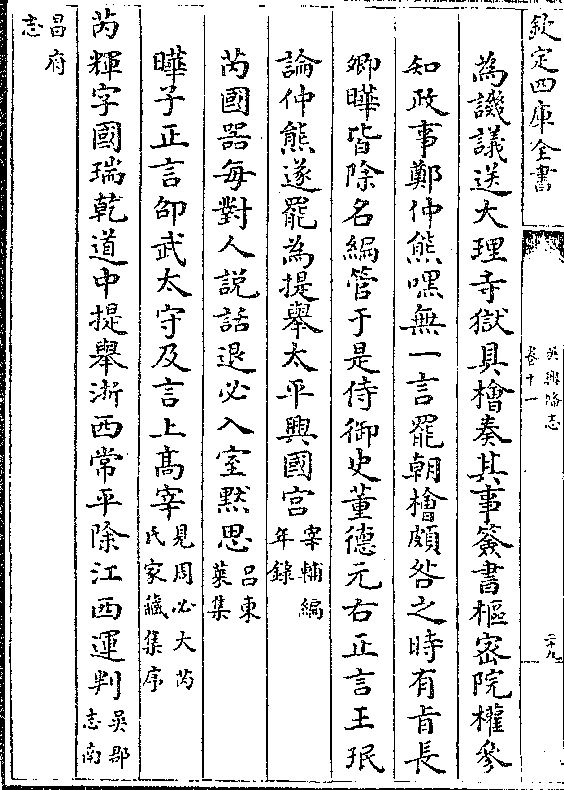 欽定四庫全書
吳興備志
卷十一
二十九
為譏議送大理寺獄具檜奏其事簽書樞密院權參
知政事鄭仲熊嘿無一言罷朝檜頗咎之時有肯長
卿曄皆除名編管于是侍御史董德元右正言王珉
論仲熊遂罷為提舉太平興國宫宰輔編
年録
芮國器每對人説話退必入室黙思吕東
萊集
曄子正言邵武太守及言上髙宰見周必大芮
氏家藏集序
芮輝字國瑞乾道中提舉浙西常平除江西運判吳郡
志南
昌府
志